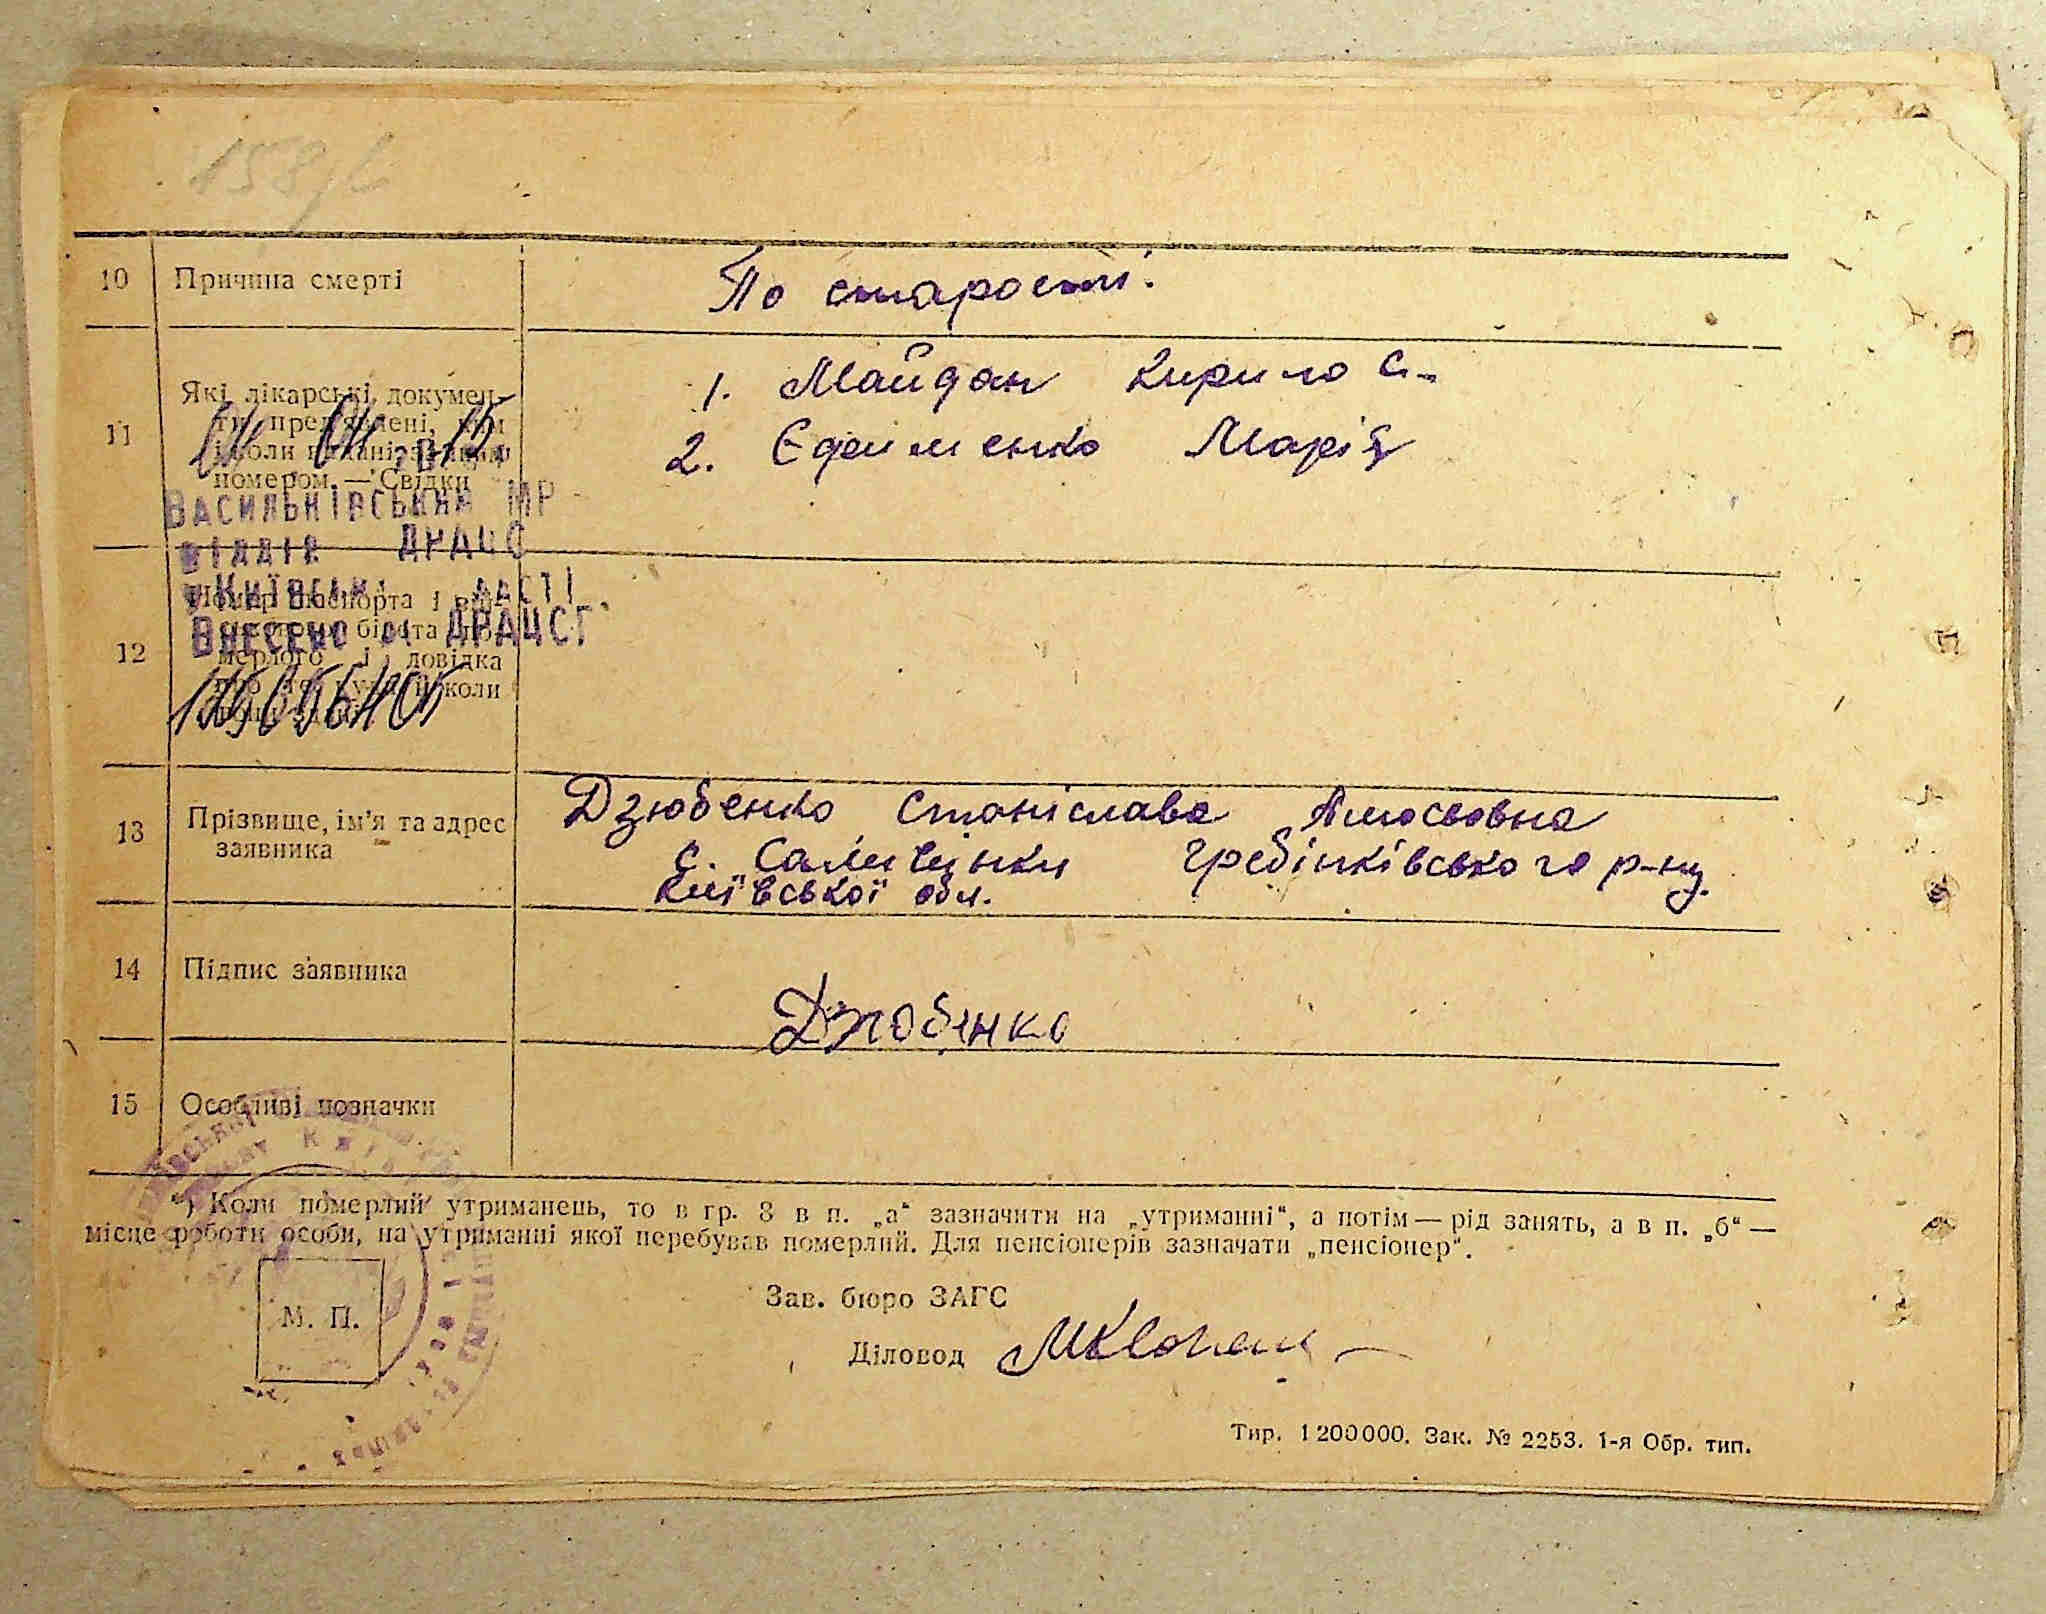 10 Причина смерті По старості.
11 Які лікарські докумен-
ти пред'явлені, ким
і коли видані, за яким
номером. — Свідки
1. Майдан Кирило С.
2. Єфименко Марія
Васильківський МР
відділ ДРАЦС
у Київській області
Внесено до ДРАЦСГ
12 Номер паспорта і
білета
мерлого і довідка
коли
13 Прізвище, ім'я та адрес
заявника
Дзюбенко Станіслава Амосовна
с. Саливінки Гребінківського р-ну
Київської обл.
14 Підпис заявника Дзюбенко
15 Особливі позначки
*) Коли померлий утриманець, то в гр. 8 в п. „а“ зазначити на „утриманні“, а потім — рід занять, а в п. „б“ —
місце роботи особи, на утриманні якої перебував померлий. Для пенсіонерів зазначати „пенсіонер“.
М. П.
Зав. бюро ЗАГС
Діловод
Тир. 1200000. Зак. № 2253. 1-я Обр. тип.